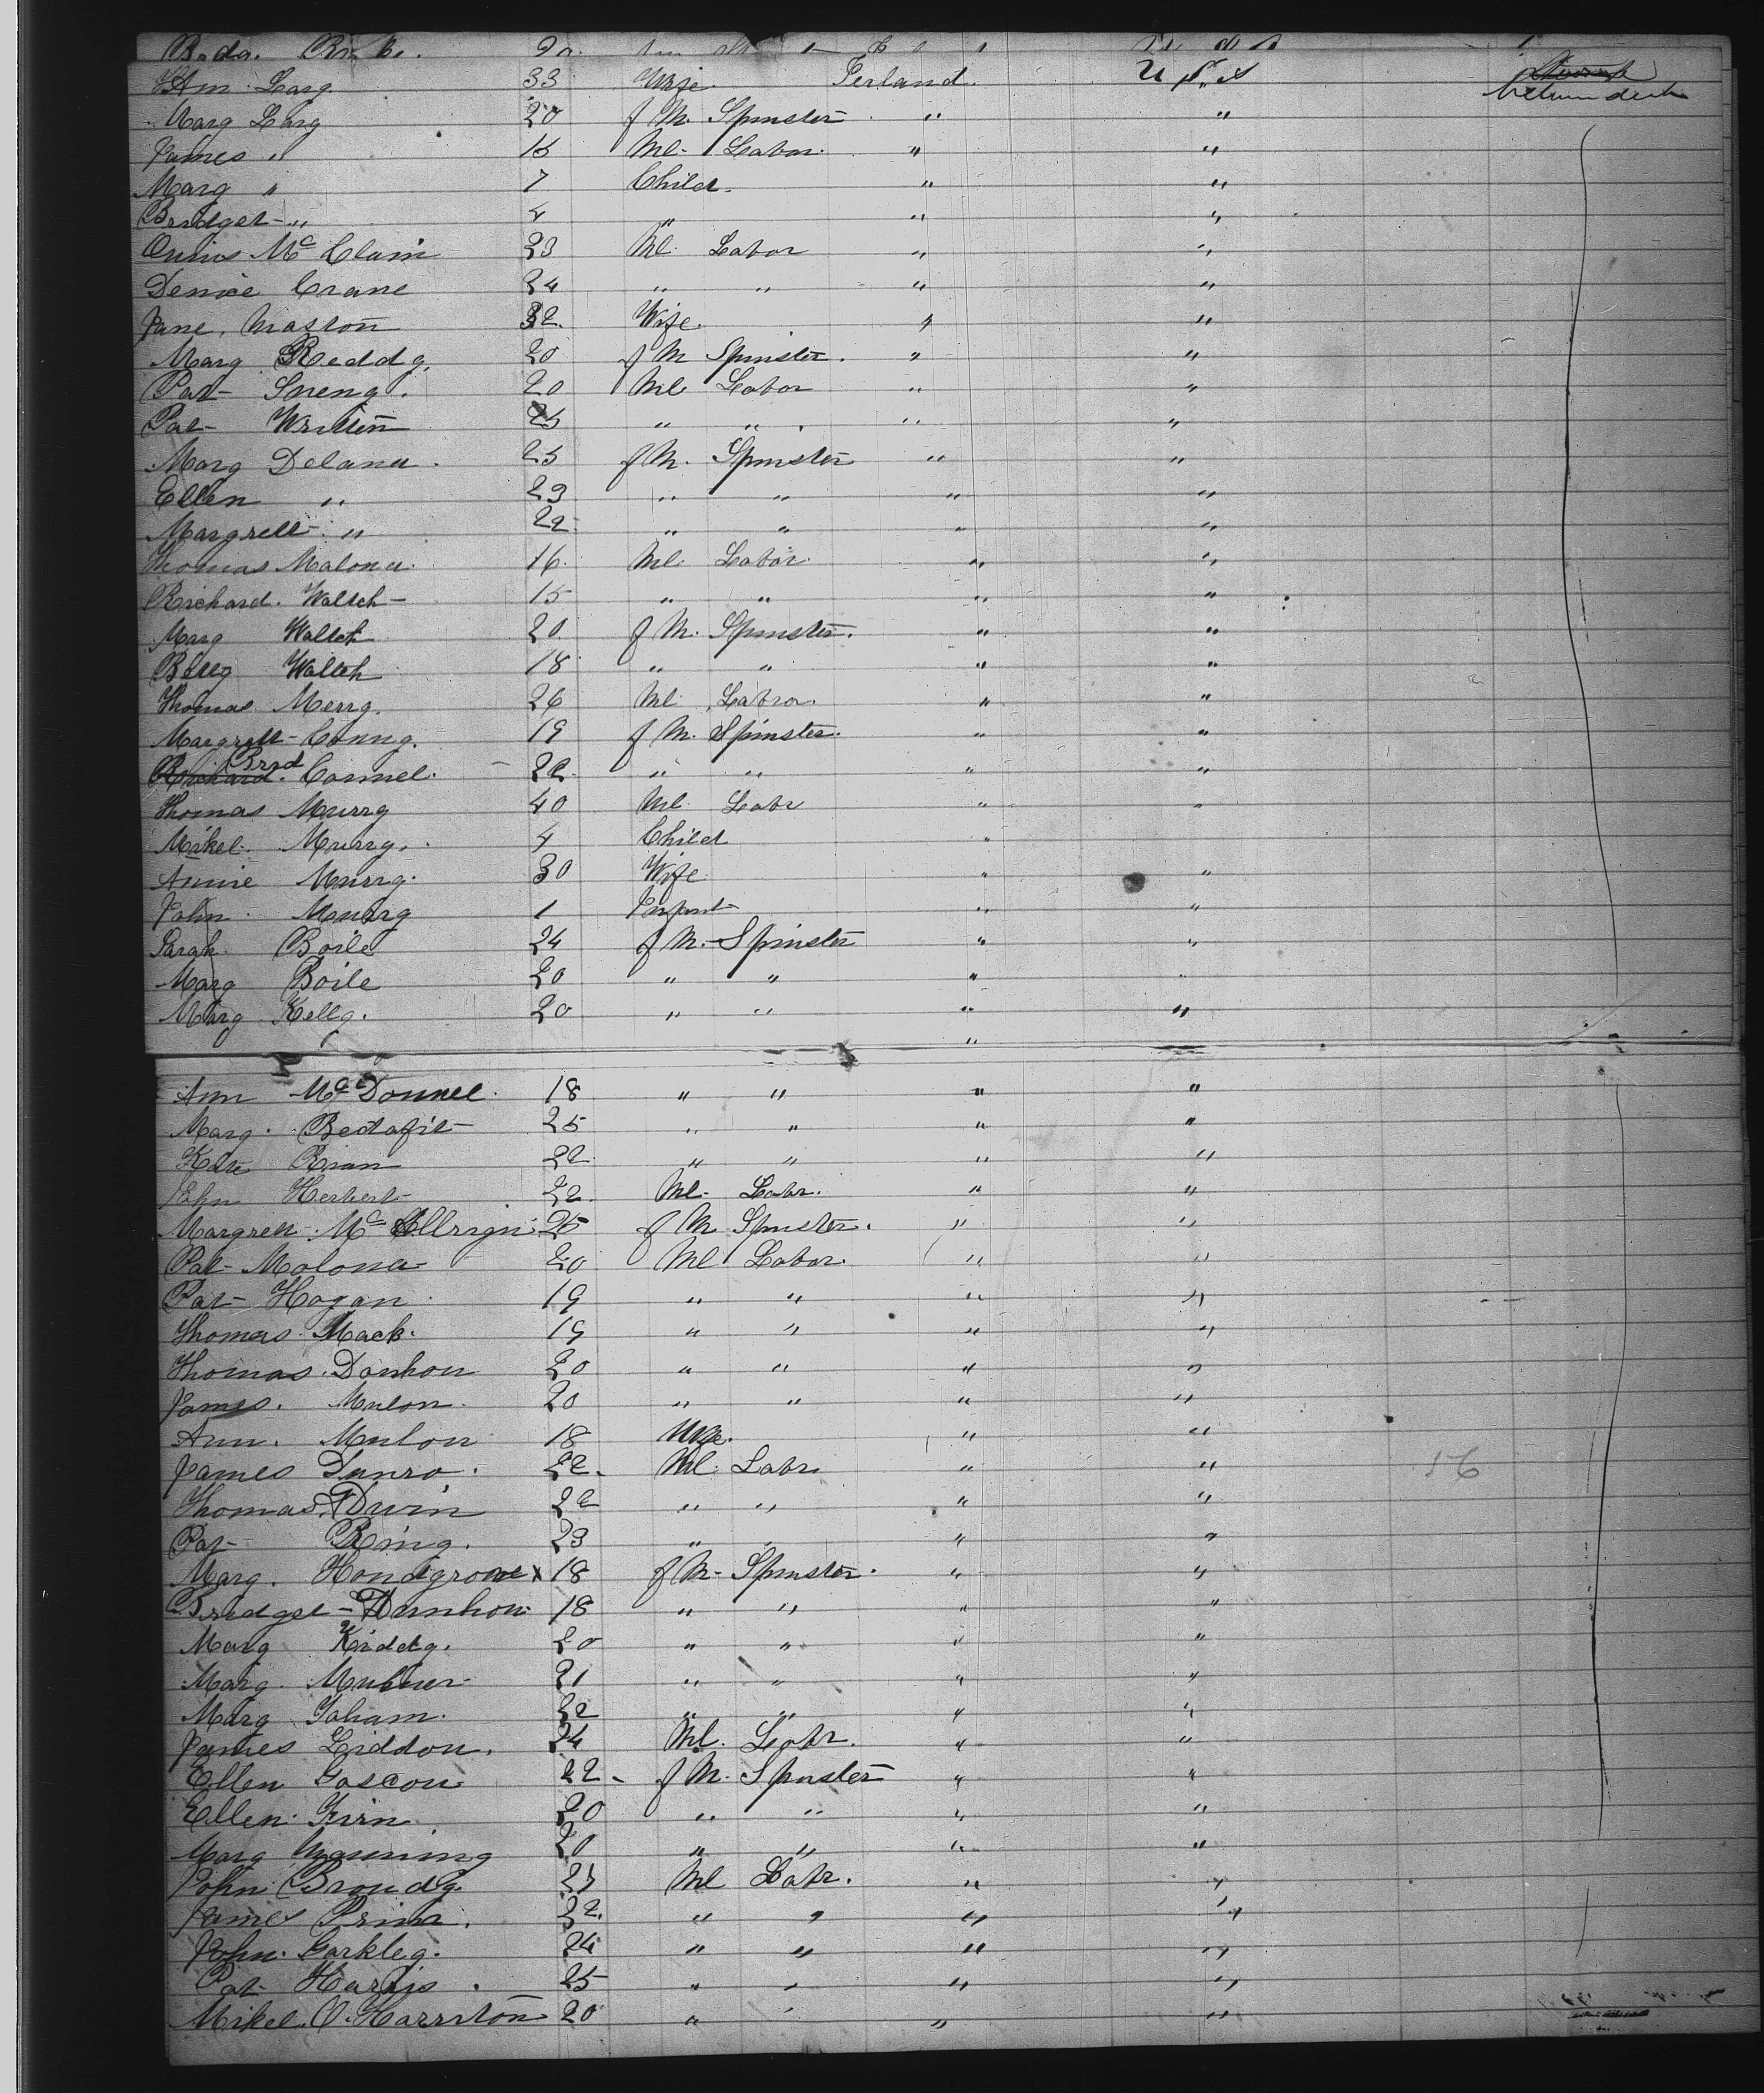 Ann Larg 33 Wife Ierland U.S.A
Marg Larg 20 f M. Spinster " "
James " 15 Ml. Labor " "
Marg " 7 Child " "
Bridget " 4 " " "
Mc Clain 23 Ml. Labor " "
Denice Crane 24 " " " "
Jane Maston 32 Wife " "
Marg Reddy. 20 f M Spinster. " "
Pat Sneng. 20 Ml Labor " "
Pat Written 25 " " " "
Marg Delana. 25 f M. Spinster " "
Ellen " 23 " " " "
Margrett " 22 " " " "
Thomas Malona. 16. Ml. Labor " "
Richard. Waltch 15 " " " "
Marg Waltch 20 f M. Spinster. " "
Waltch 18 " " " "
Thomas Merry. 26 Ml. Labror. " "
Margrett Conny. 19 f M. Spinster. " "
Brid Connel. 22. " " " "
Thomas Murry 40 Ml. Labr " "
Mikel. Murry. 4 Child "
Annie Murry. 30 Wife " "
John Murry 1 Infant " "
Sarah. Boile 24 f M. Spinster " "
Marg Boile 20 " " "
Marg Kelly. 20 " " " "
"
Ann McDonnel. 18 " " " "
Marg. 25 " " " "
Kate Rian 22 " " " "
John Herbert 22. Ml. Labr. " "
Margrett Mc 25 f M Spinster. " "
Pat Molona 20 Ml Labor. " "
Pat Hogan 19 " " " "
Thomas. Mack. 19 " " " "
Thomas. Donhou 20 " " " "
James. Mulon. 20 " " " "
Ann. Mulon 18 Wife. " "
James Dunro. 22. Ml. Labr. " " 16
Thomas Dwin 22 " " " "
Pat Ring. 23 " " "
Marg. Hondgrove x 18 f M. Spinster. " "
Bridget Dunhou 18 " " " "
Marg Kiddy. 20 " " " "
Marg. 21 " " " "
Marg Gaham. 22 " " " "
James Liddon. 24 Ml. Labr. " "
Ellen Gascou 22 f M. Spinster " "
Ellen. Firn. 20 " " " "
Marg Manning 20 " " " "
John Broudy. 23 Ml Labr. " "
James Prina. 22. " " " "
John. Garkleg. 24 " " " "
Pat Harris. 25 " " " "
Mikel. O. Harriton 20 " " " "